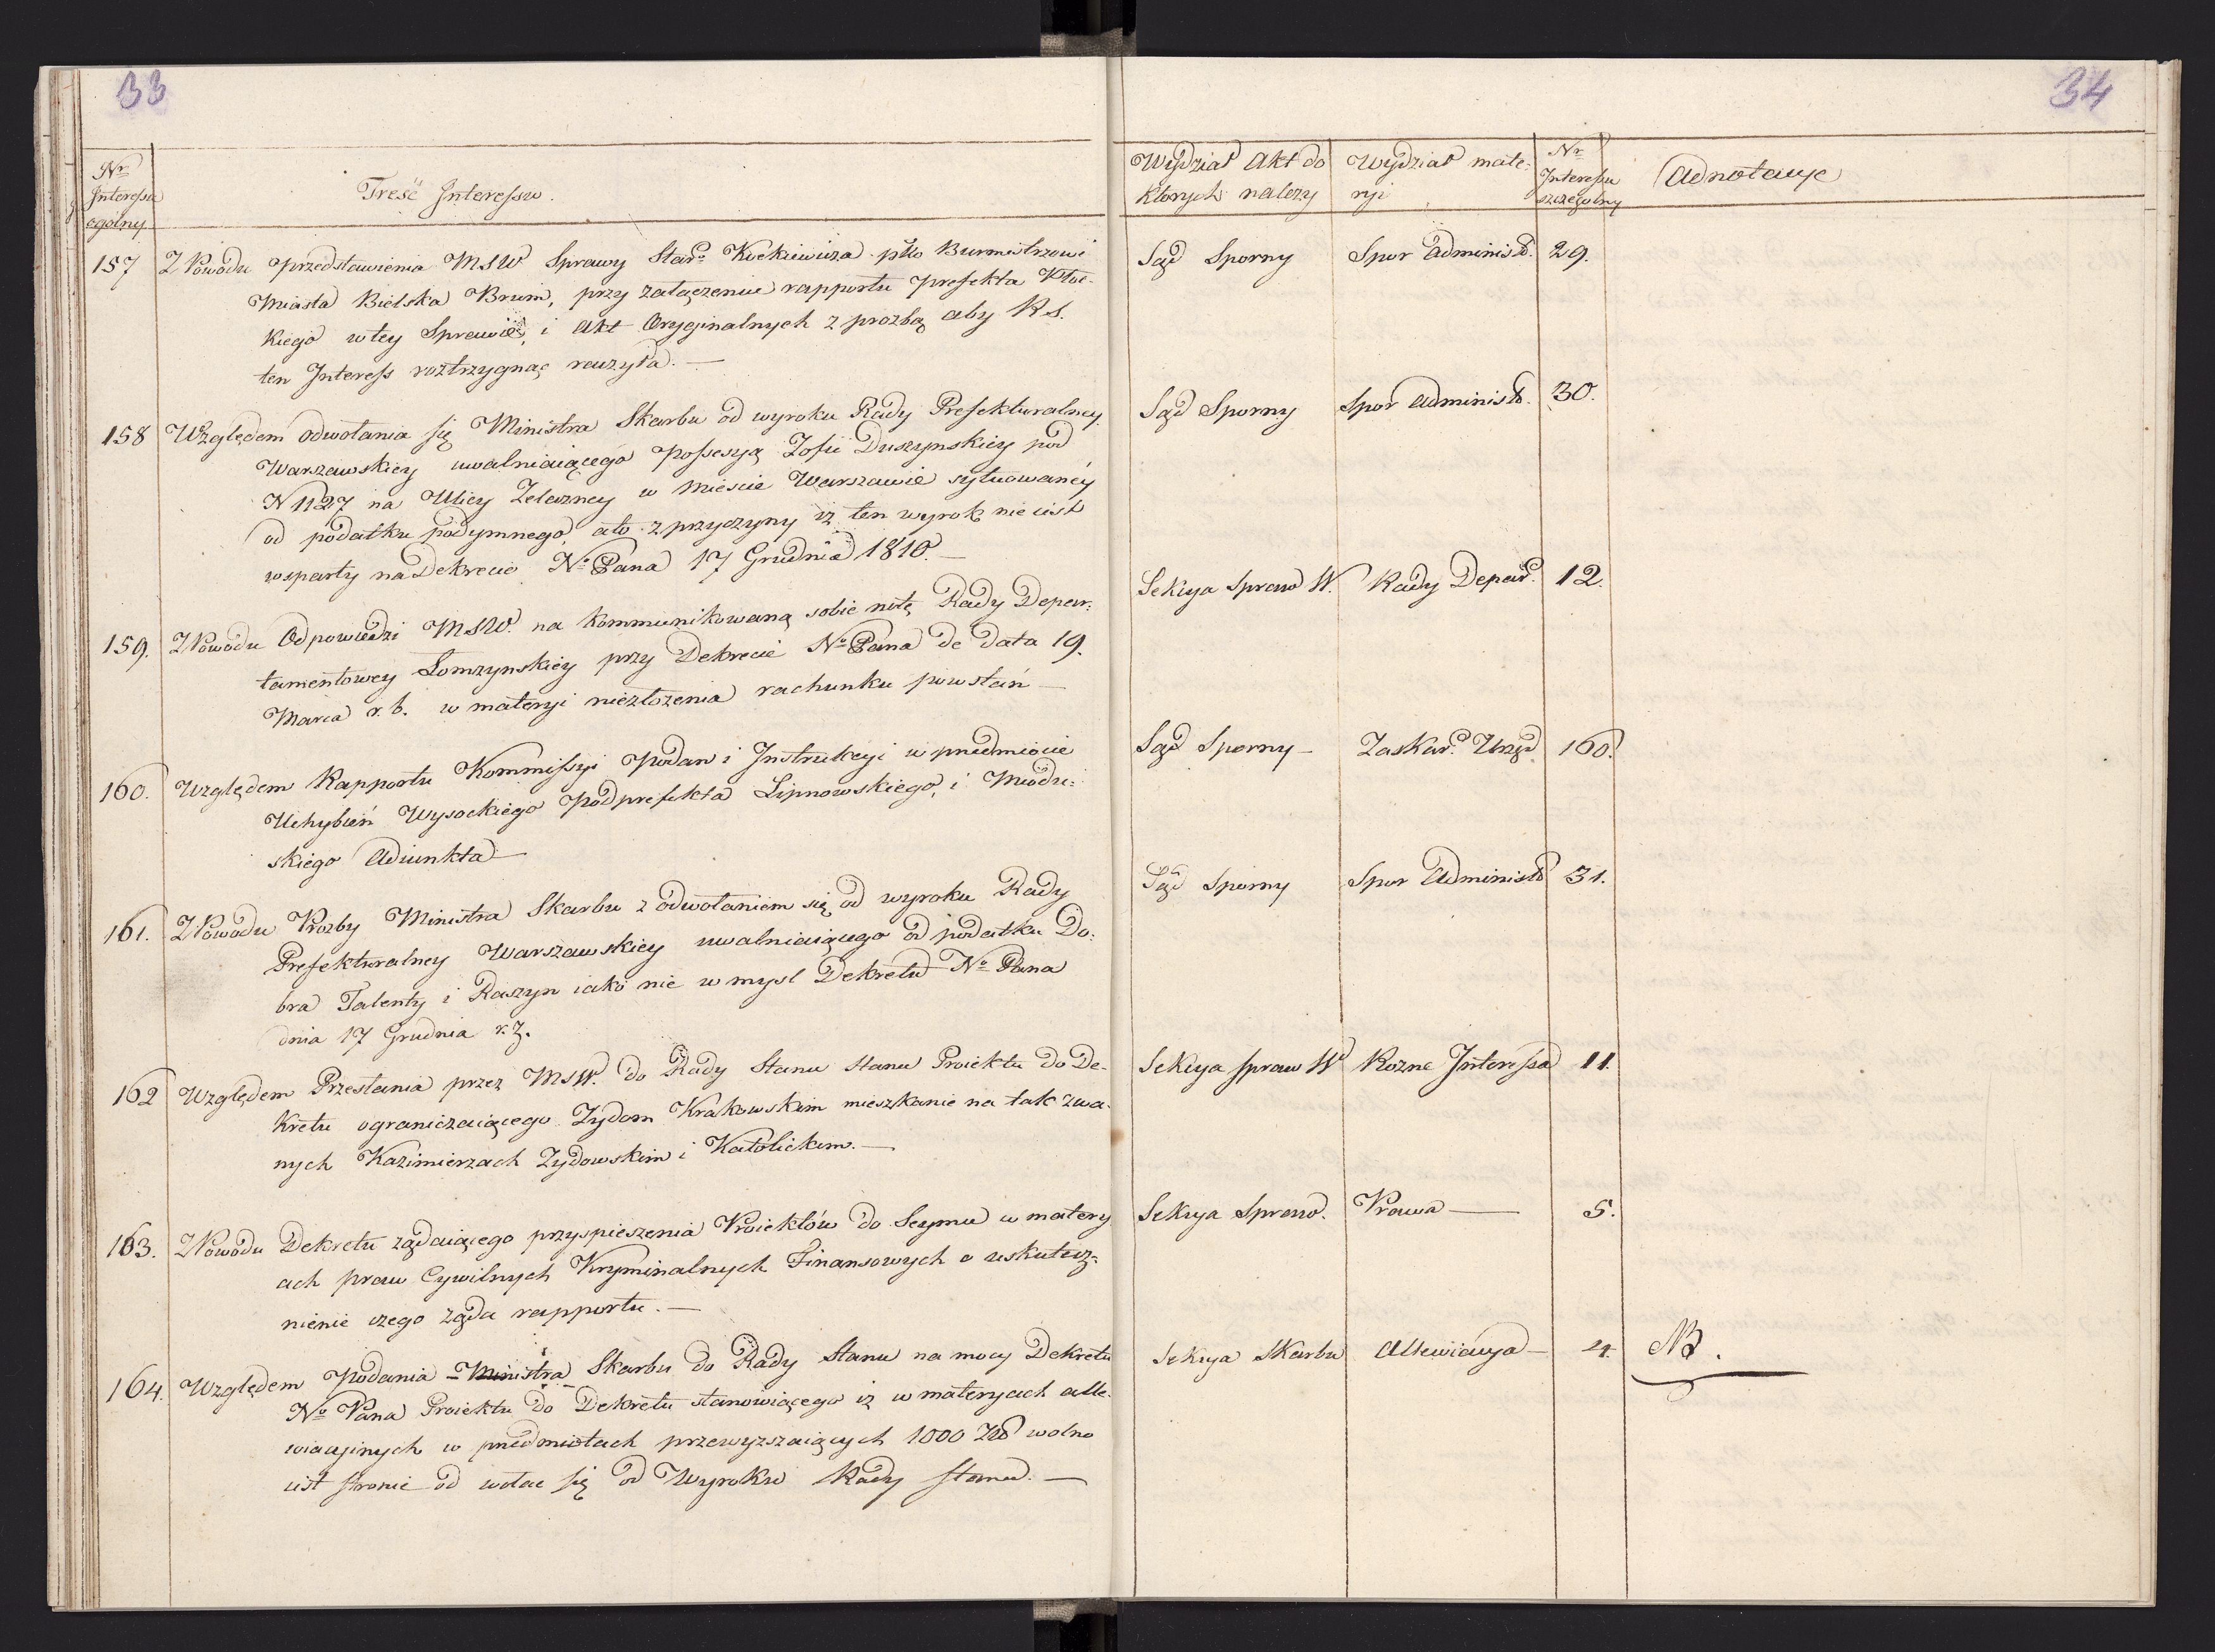 33
Nr Interessu ogolny
Treść Interessu.
157 Z Powodu przedstawienia MSW Sprawy Star: Kuckiewicza pko Burmistrzowi
Miasta Bielska Brum, przy załączeniu rapportu Prefekta Płoc-
kiego w tey Sprawie, i Akt Oryginalnych z prozbą aby R S.
ten Interess roztrzygnąc raczyła. —
158 Względem odwołania się Ministra Skarbu od wyroku Rady Prefekturalney
Warszawskiey uwalniaiącego possesyą Zofii Duszynskiey pod
N 1127 na Ulicy Zelazney w Miescie Warszawie sytuowaney
od podatku podymnego, ato z przyczyny iż ten wyrok nie iest
wsparty na Dekrecie N: Pana 17 Grudnia 1810. —
159. Z Powodu Odpowiedzi MSW. na kommunikowaną sobie notę Rady Depar:
tamentowey Łomzynskiey przy Dekrecie N: Pana de data 19.
Marca r. b. w materyi niezłozenia rachunku powstań —
160. Względem Rapportu Kommissyi Podan i Instrukcyi w przedmiocie
Uchybień Wysockiego Podprefekta Lipnowskiego, i Miodu:
skiego Adiunkta —
161. Z Powodu Prozby Ministra Skarbu z odwołaniem się od wyroku Rady
Prefekturalney Warszawskiey uwalniaiącego od podatku Do:
bra Falenty i Raszyn iako nie w mysl Dekretu N: Pana
dnia 17 Grudnia r. z.
162 Względem Przesłania przez MSW. do Rady Stanu Stanu Proiektu do De-
kretu ograniczaiącego Zydom Krakowskim mieszkanie na tak zwa-
nych Kazimierzach Zydowskim i Katolickim. —
163. Z Powodu Dekretu ządaiącego przyspieszenia Proiektów do Seymu w matery
ach praw Cywilnych Kryminalnych Finansowych o uskutecz:
nienie czego ząda rapportu. —
164. Względem Podania Ministra Skarbu do Rady Stanu na mocy Dekretu
N: Pana Proiektu do Dekretu stanowiącego iż w materyach alle-
wiacyinych w przedmiotach przewyzszaiących 1000 Zł wolno
iest stronie od wołac się od Wyroku Rady Stanu. —
34
Wydział Akt do ktorych nalezy
Wydział mate- ryi
Nr Interessu szczegolny
Adnotacye
Sąd Sporny Spor Administr. 29.
Sąd Sporny Spor Administr. 30.
Sekcya Spraw W. Rady Depar. 12.
Sąd Sporny — Zaskar. Urzęd 160.
Sąd Sporny Spor Administr 31.
Sekcya Spraw W Rozne Interessa 11.
Sekcya Spraw. Prawa — 5.
Sekcya Skarbu Allewiacya — 4. NB.